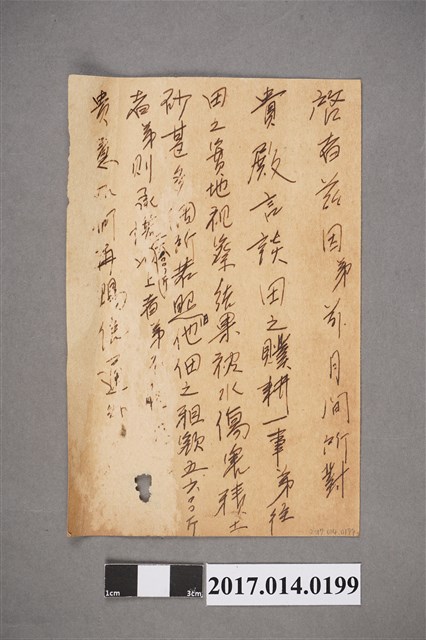 啓者茲因弟前月間所對
貴殿言談田之贌耕一事弟往
田之實地視察結果被水傷害積土
砂甚多個所若照他佃之租穀五六〇斤
者弟則承諾以上者弟不
貴意如何再賜信
2017.014.0199
1cm
3cm
2017.014.0199